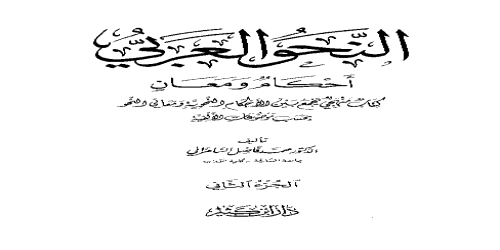 النحو العربي
أحكام ومعان
كتاب منهجي يجمع بين الأحكام النحوية ومعاني النحو
بحسب موضوعات الألفية
تأليف
الدكتور محمد فاضل السامرائي
الجزء الثاني
دار ابن كثير